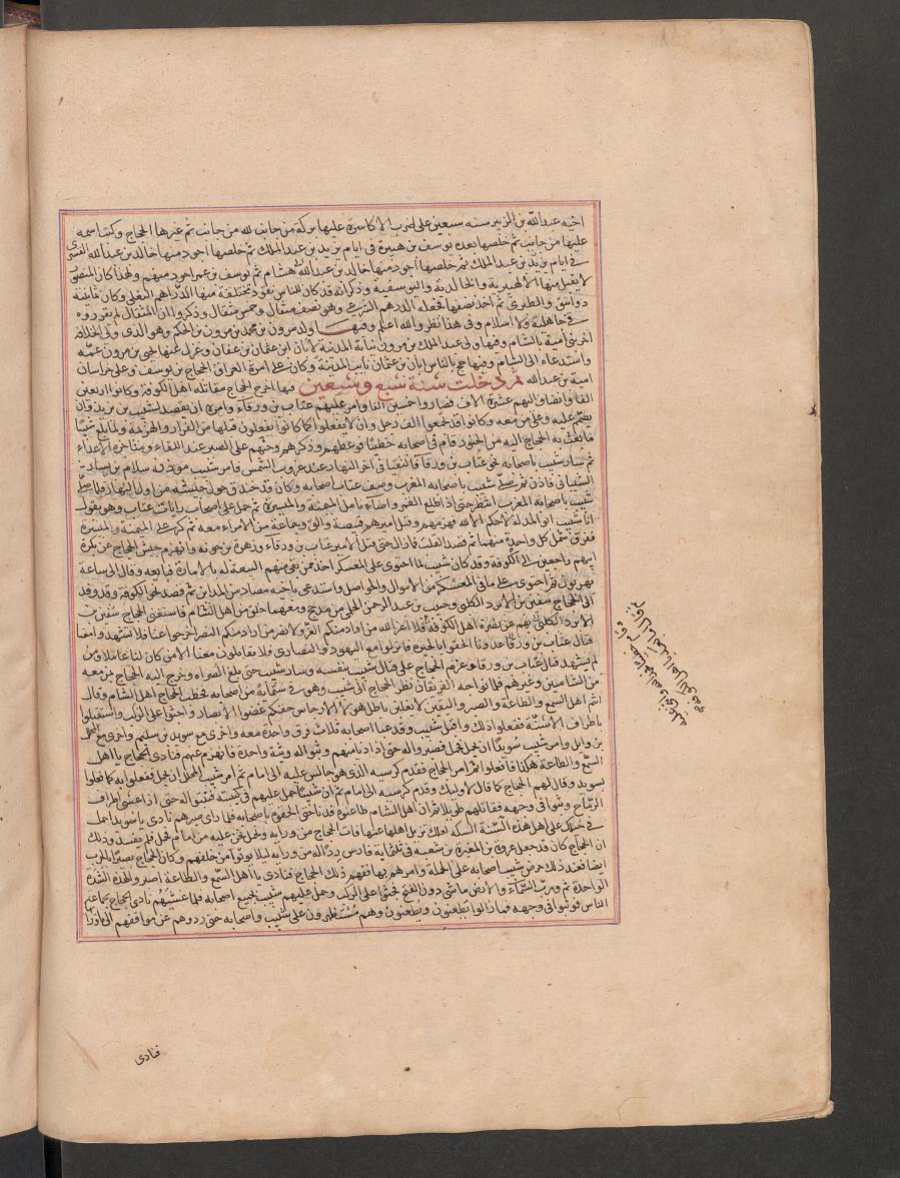 اخيه عبد الله بن الزبير سنة سبعين على ضرب الاكاسرة عليها بركة من جانب لله من جانب ثم غيرها الحجاج وكتب اسمه
عليها من جانب ثم خلصها بعده يوسف بن هبيرة في ايام يزيد بن عبد الملك ثم خلصها اجود منها خالد بن عبد الله القسري
في ايام يزيد بن عبد الملك ثم خلصها اجود منها خالد بن عبد الله هشام ثم يوسف بن عمر اجود منهم ولهذا كان المنصور
لا يقبل منها الا الهبيرية والخالدية واليوسفيه وذكر انه قد كان للناس نقود مختلفة منها الدراهم البغلي وكان ثمانية
دوانق والطبري ثم اخذ نصفها فجعله الدرهم الشرعي وهو نصف مثقال وخمس مثقال وذكروا ان المثقال لم يغيروه
في جاهلية ولا اسلام وفي هذا نظر والله اعلم وفيها ولد مرون بن محمد بن مرون بن الحكم وهو الذي ولي الخلافة
اخر بني امية بالشام وفيها ولى عبد الملك بن مرون نيابة المدينة لابان ابن عثمان بن عفان وعزل عنها يحيى بن مرون عمه
واستدعاه الى الشام وفيها حج بالناس ابان بن عثمان نايب المدينة وكان على امرة العراق الحجاج بن يوسف وعلى خراسان
امية بن عبد الله ثم دخلت سنة سبع وسبعين فيها اخرج الحجاج مقاتلة اهل الكوفة وكانوا اربعين
الفا وانضاف اليهم عشرة الاف فصاروا خمسين الفا وامر عليهم عتاب بن ورقاء وامره ان يقصد لشبيب بن يزيد
وعلى من معه وكانوا قد تجمعوا الف رجل وان لا يفعلوا كما كانوا يفعلون قبلها من الفرار والهزيمة ولما بلغ شبيبا
ما بعث به الحجاج اليه من الجنود قام في اصحابه خطيبا فوعظهم وذكرهم وحثهم على الصبر عند اللقاء ومناجزة الاعداء
ثم سار شبيب باصحابه نحو عتاب بن ورقا فالتقيا في اخر النهار عند غروب الشمس فامر شبيب موذنه سلام بن يسار
الشيباني فاذن ثم صلى شبيب باصحابه المغرب وصف عتاب اصحابه وكان قد خندق حول جيشه من اول النهار فلما صلى
شبيب باصحابه المغرب انتظر حتى اذا طلع القمر واضاء تامل الميمنة والميسرة ثم حمل على اصحاب رايات عتاب وهو يقول
انا شبيب ابو المدله لا حكم الا لله فهزمهم وقتل اميرهم قبيصة وجماعة من الامراء معه ثم كر على الميمنة والميسرة
ففرق شمل كل واحدة منهما ثم قصد القلب فما زال حتى قتل الامير عتاب بن ورقاء وزهرة بن جونه وانهزم
راجعين الى الكوفة وقد كان شبيب لما احتوى على المعسكر اخذ ممن بقي منهم البيعة له بالامارة فبايعه وقال الى ساعة
تهربون ثم احتوى على ما في المعسكر من الاموال والحواصل واستدعى باخيه مصاد من المداين ثم قصد نحو الكوفة وقد وفد
الى الحجاج سفين بن الابرد الكلبي وحبيب بن عبد الرحمن الحكمي من مذحج ومعهما خلق من اهل الشام فاستغنى الحجاج
الابرد الكلبي بهم عن نصرة اهل الكوفة فلا اعز الله من اراد منكم العز ولا نصر من اراد منكم النصر اخرجوا عنا فلا تشهدوا معنا
قتال عتاب بن ورقا عدونا الحقوا بالحيرة فانزلوا مع اليهود والنصارى فلا يقاتلون معنا الا من كان لنا عاملا ومن
لم يشهد قتال عتاب بن ورقا وعزم الحجاج على قتال شبيب بنفسه وسار شبيب حتى بلغ الصراه وخرج اليه الحجاج بمن معه
من الشاميين وغيرهم فلما تواجه الفريقان نظر الحجاج الى شبيب وهو في ستماية من اصحابه فخطب الحجاج اهل الشام وقال
انتم اهل السمع والطاعة والصبر واليقين لا يغلبن باطل هولاء الارجاس حقكم غضوا الابصار واجثوا على الركب واستقبلوا
باطراف الاسنة ففعلوا ذلك واقبل شبيب وقد عبا اصحابه ثلاث فرق واحدة معه واخرى مع سويد بن سليم واخرى مع المحلل
بن وايل وامر شبيب سويدا ان يحمل فحمل فصبروا له حتى اذا دنا منهم وثبوا له وثبة واحدة فانهزم عنهم فنادى الحجاج يا اهل
السمع والطاعة هكذا فافعلوا ثم امر الحجاج فقدم كرسيه الذي هو جالس عليه الى امام ثم امر شبيب المحلل ان يحمل ففعلوا به كما فعلوا
بسويد وقال لهم الحجاج كما قال لاوليك وقدم كرسيه الى امام ثم ان شبيبا حمل عليهم في كتيبته فثبتوا له حتى اذا غشي اطراف
الرماح وثبوا في وجهه فقاتلهم طويلا ثم ان اهل الشام طاعنوه قدما حتى الحقوه باصحابه فلما راى صبرهم نادى يا سويد احمل
في خيلك على اهل هذه السكة لعلك تزيل اهلها عنها فات الحجاج من ورايه ونحمل نحن عليه من امامه فحمل فلم يفد وذلك
ان الحجاج كان قد جعل عروة بن المغيرة بن شعبة في ثلثماية فارس ردا له من ورايه ليلا يوتوا من خلفهم وكان الحجاج بصيرا بالحرب
ايضا فعند ذلك حرض شبيب اصحابه على الحملة وامرهم بها ففهم ذلك الحجاج فنادى يا اهل السمع والطاعة اصبروا لهذه الشدة
الواحدة ثم ورب السماء والارض ما شي دون الفتح فجثوا على الركب وحمل عليهم شبيب بجميع اصحابه فلما غشيهم نادى الحجاج بجماعة
الناس فوثبوا في وجهه فما زالوا يطعنون ويطعنون وهم مستظهرون على شبيب واصحابه حتى ردوهم عن مواقفهم الى ماوراها
فنادى